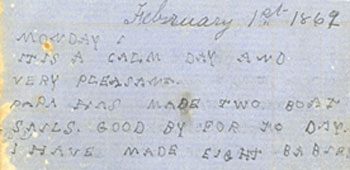 February 1st 1869
MONDAY:
IT IS A CALM DAY AND
VERY PLEASANT.
PAPA HAS MADE TWO BOAT
SAILS. GOOD BY FOR TO DAY.
I HAVE MADE EIGHT